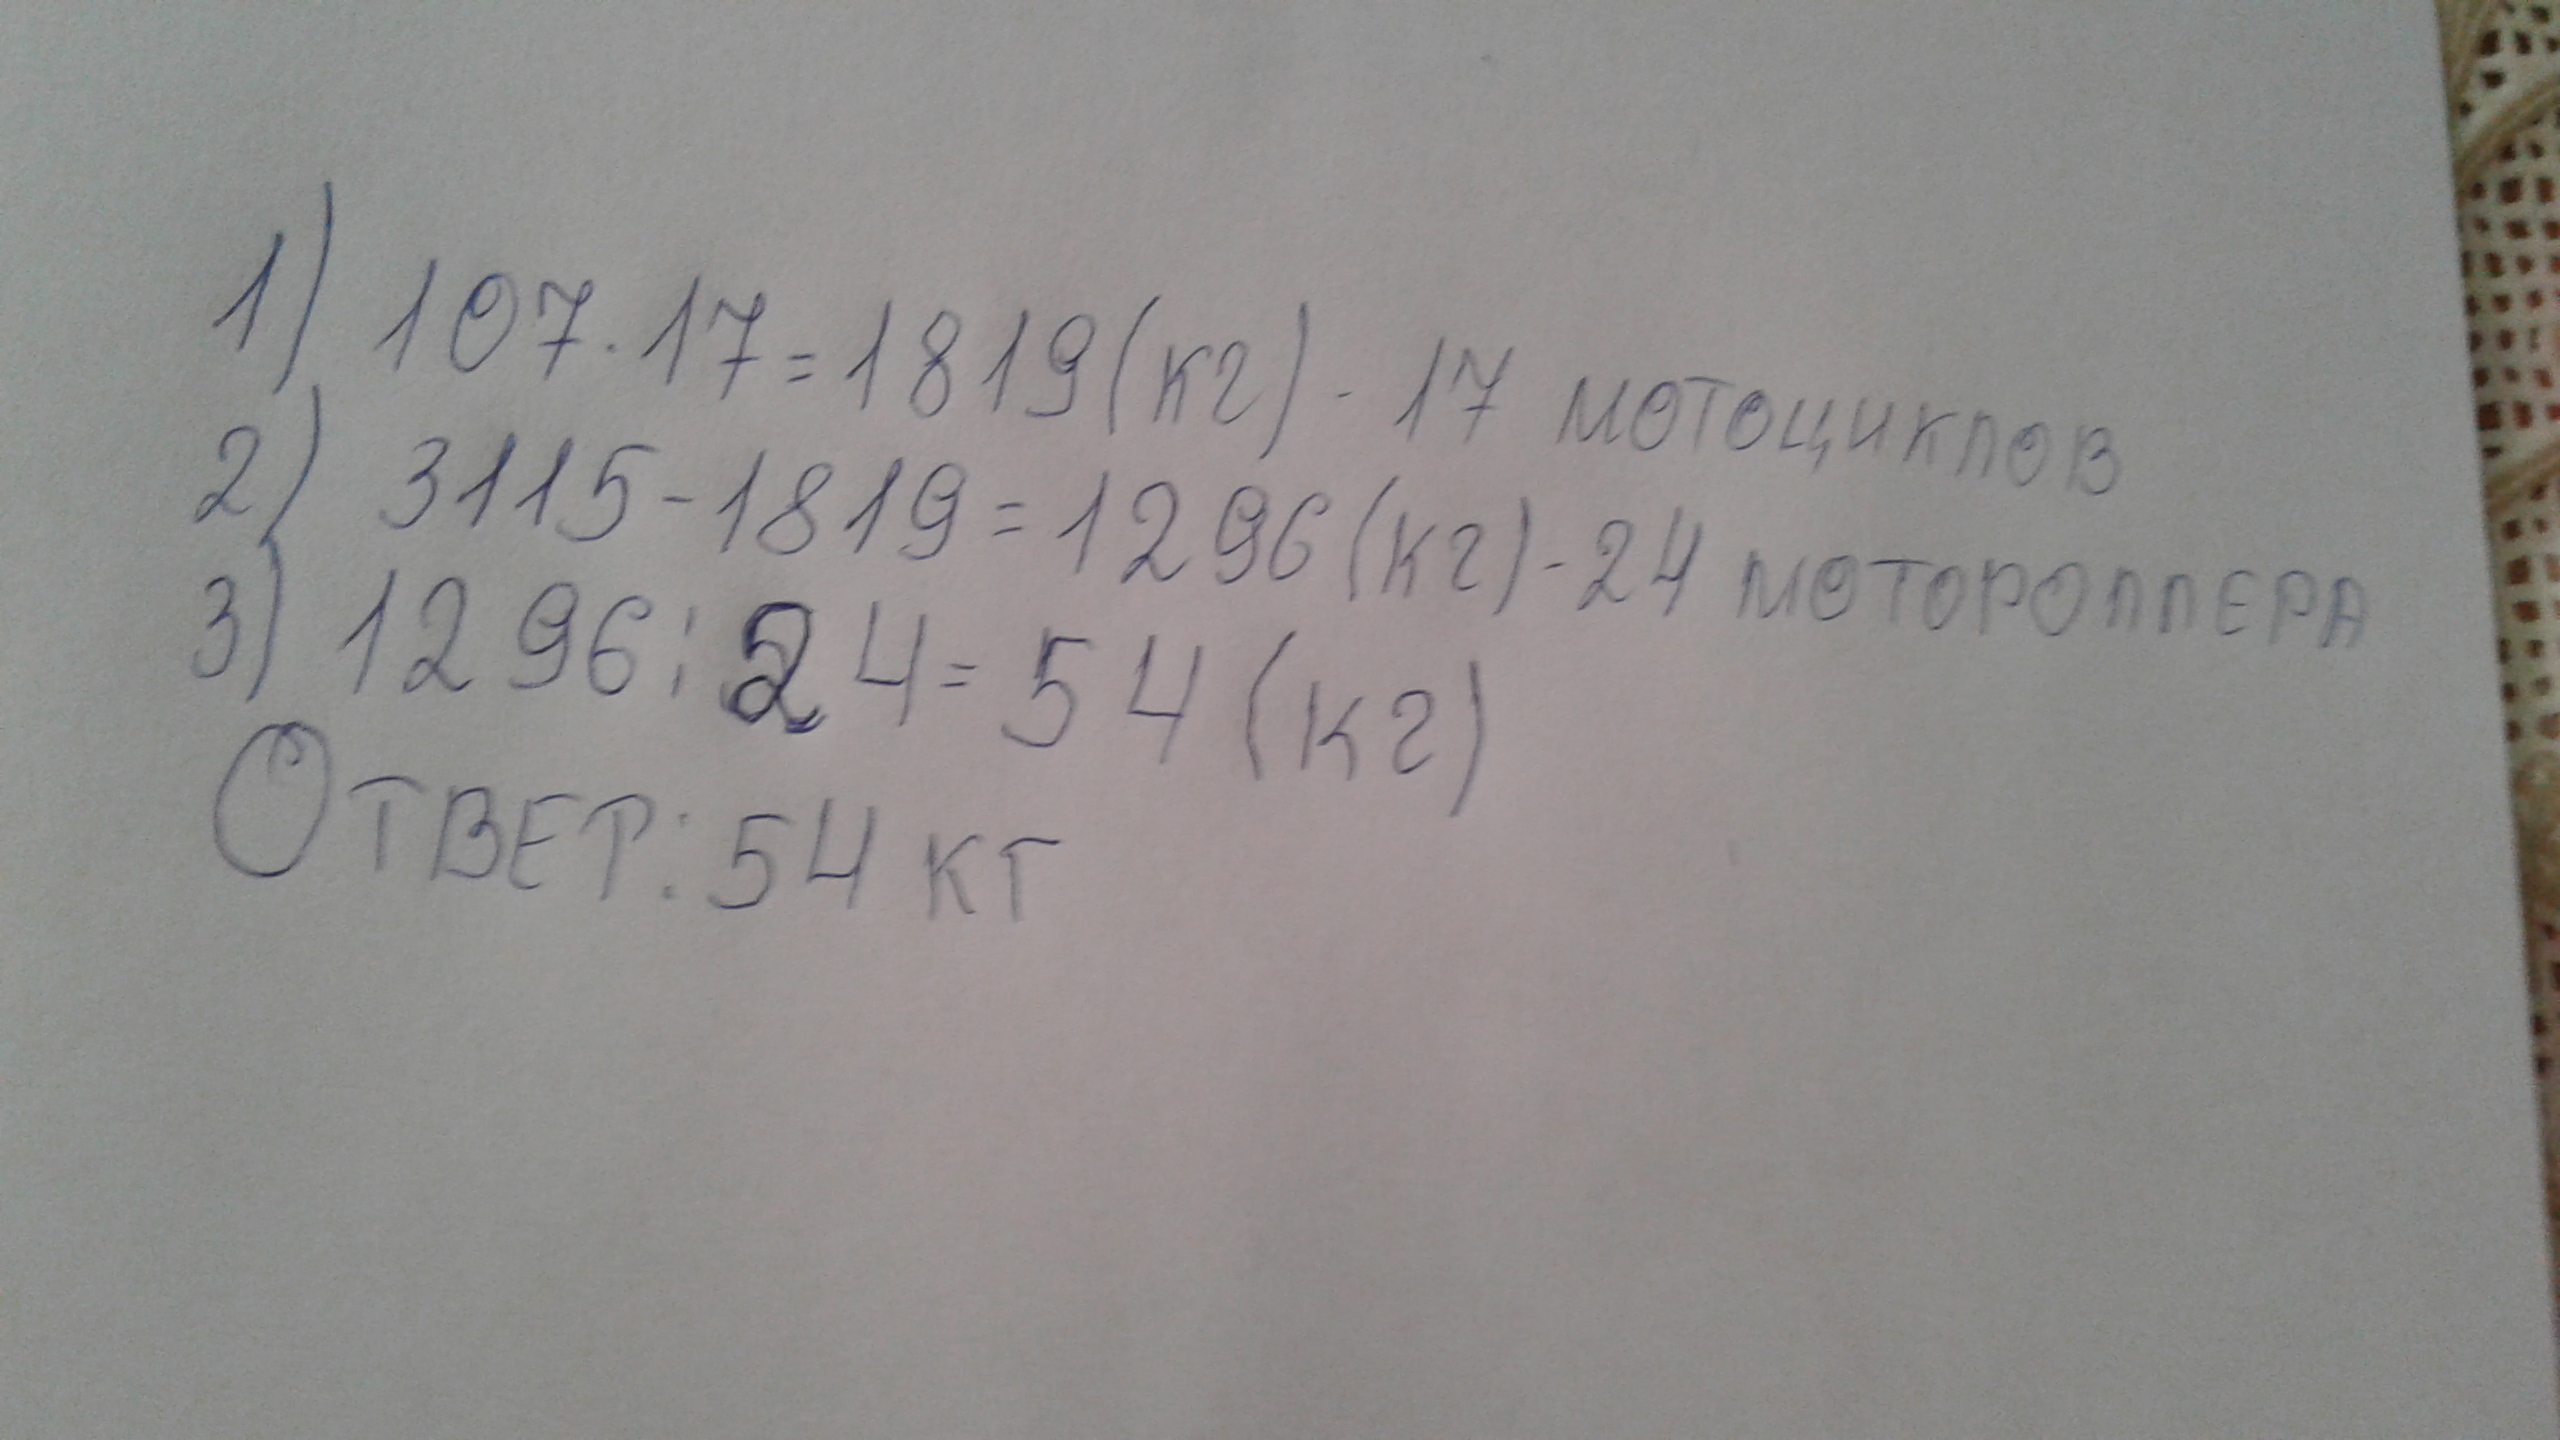 1) 107·17=1819(кг)-17 мотоциклов
2) 3115-1819=1296(кг)-24 мотороллера
3) 1296:24=54(кг)
Ответ: 54 кг